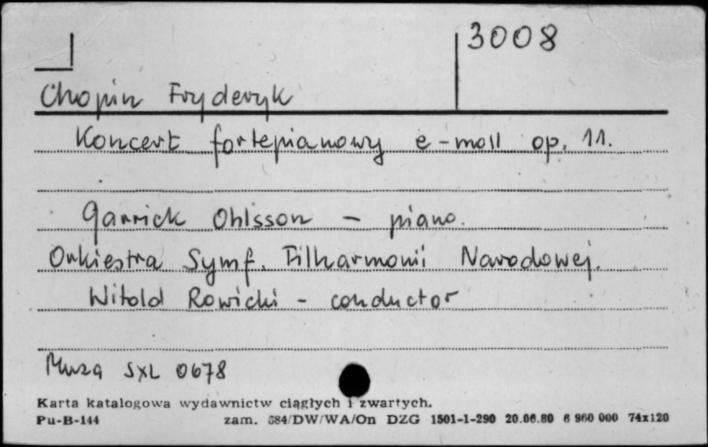 3008
Chopin Fryderyk
Koncert fortepianowy e-moll op. 11.
Garrick Ohlsson - piano.
Orkiestra Symf. Filharmonii Narodowej.
Witold Rowicki - conductor
Muza SXL 0678
Karta katalogowa wydawnictw ciągłych i zwartych.
Pu-B-144 zam. 584/DW/WA/On DZG 1501-1-290 20.06.80 6 960 000 74x120